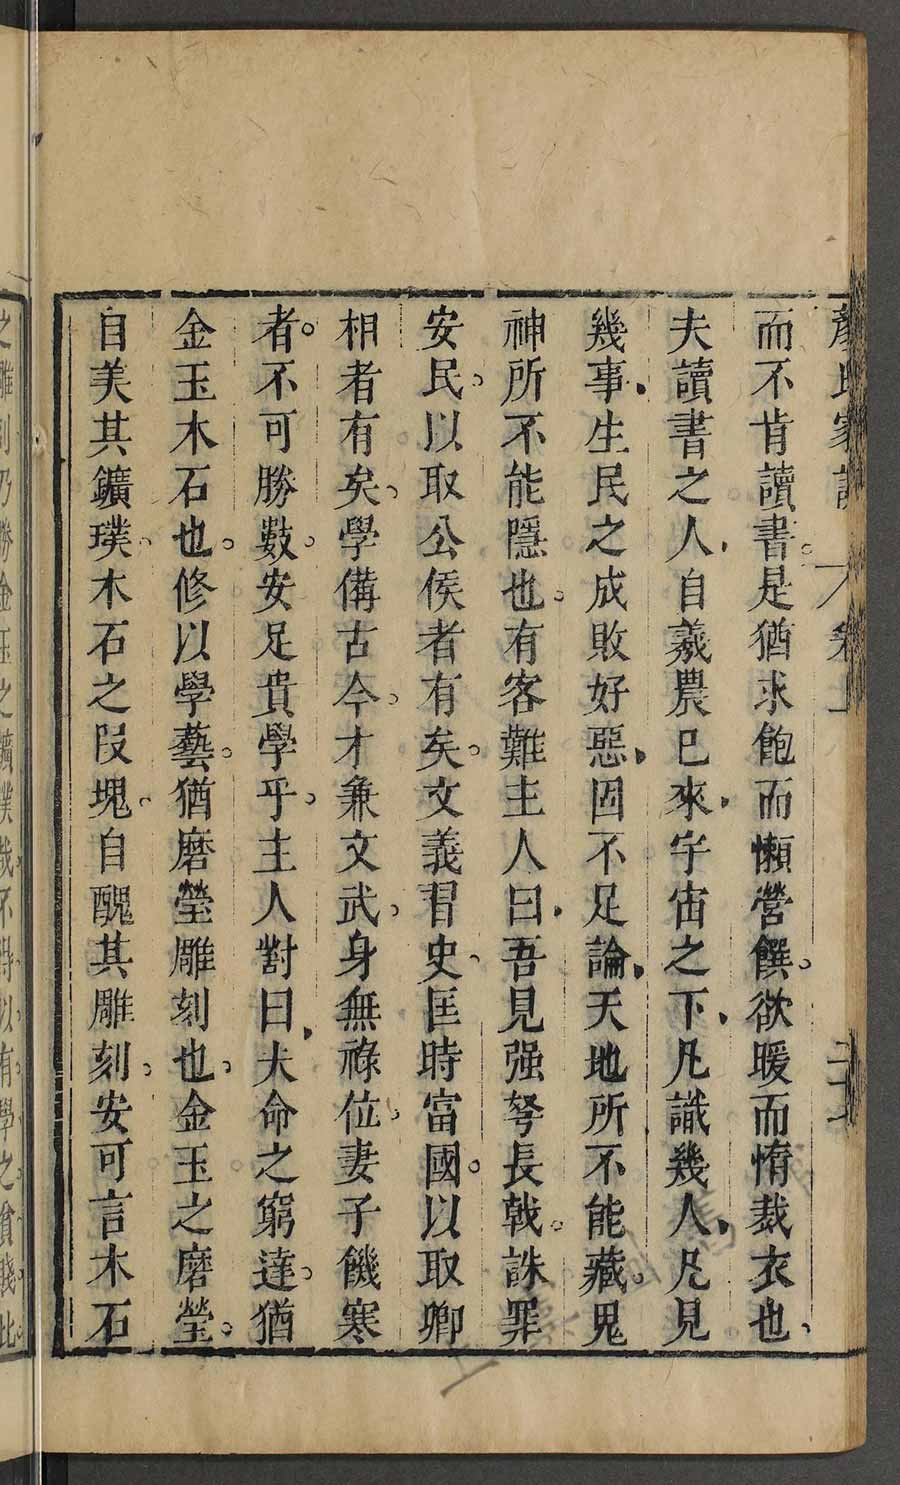 顏氏家訓 卷上
而不肯讀書。是猶求飽而懶營饌。欲暖而惰裁衣也、
夫讀書之人、自羲農已來、宇宙之下、凡識幾人、凡見
幾事、生民之成敗好惡、固不足論、天地所不能藏。鬼
神所不能隱也。有客難主人曰、吾見强弩長戟。誅罪
安民。以取公侯者有矣。文義習史、匡時富國。以取卿
相者有矣、學備古今。才兼文武、身無祿位。妻子饑寒
者。不可勝數。安足貴學乎、主人對曰、夫命之窮達。猶
金玉木石也。修以學藝。猶磨瑩雕刻也。金玉之磨瑩。
自美其鑛璞、木石之段塊、自醜其雕刻、安可言木石
之雕刻乃勝金玉之鑛璞哉不得以有學之貧賤比